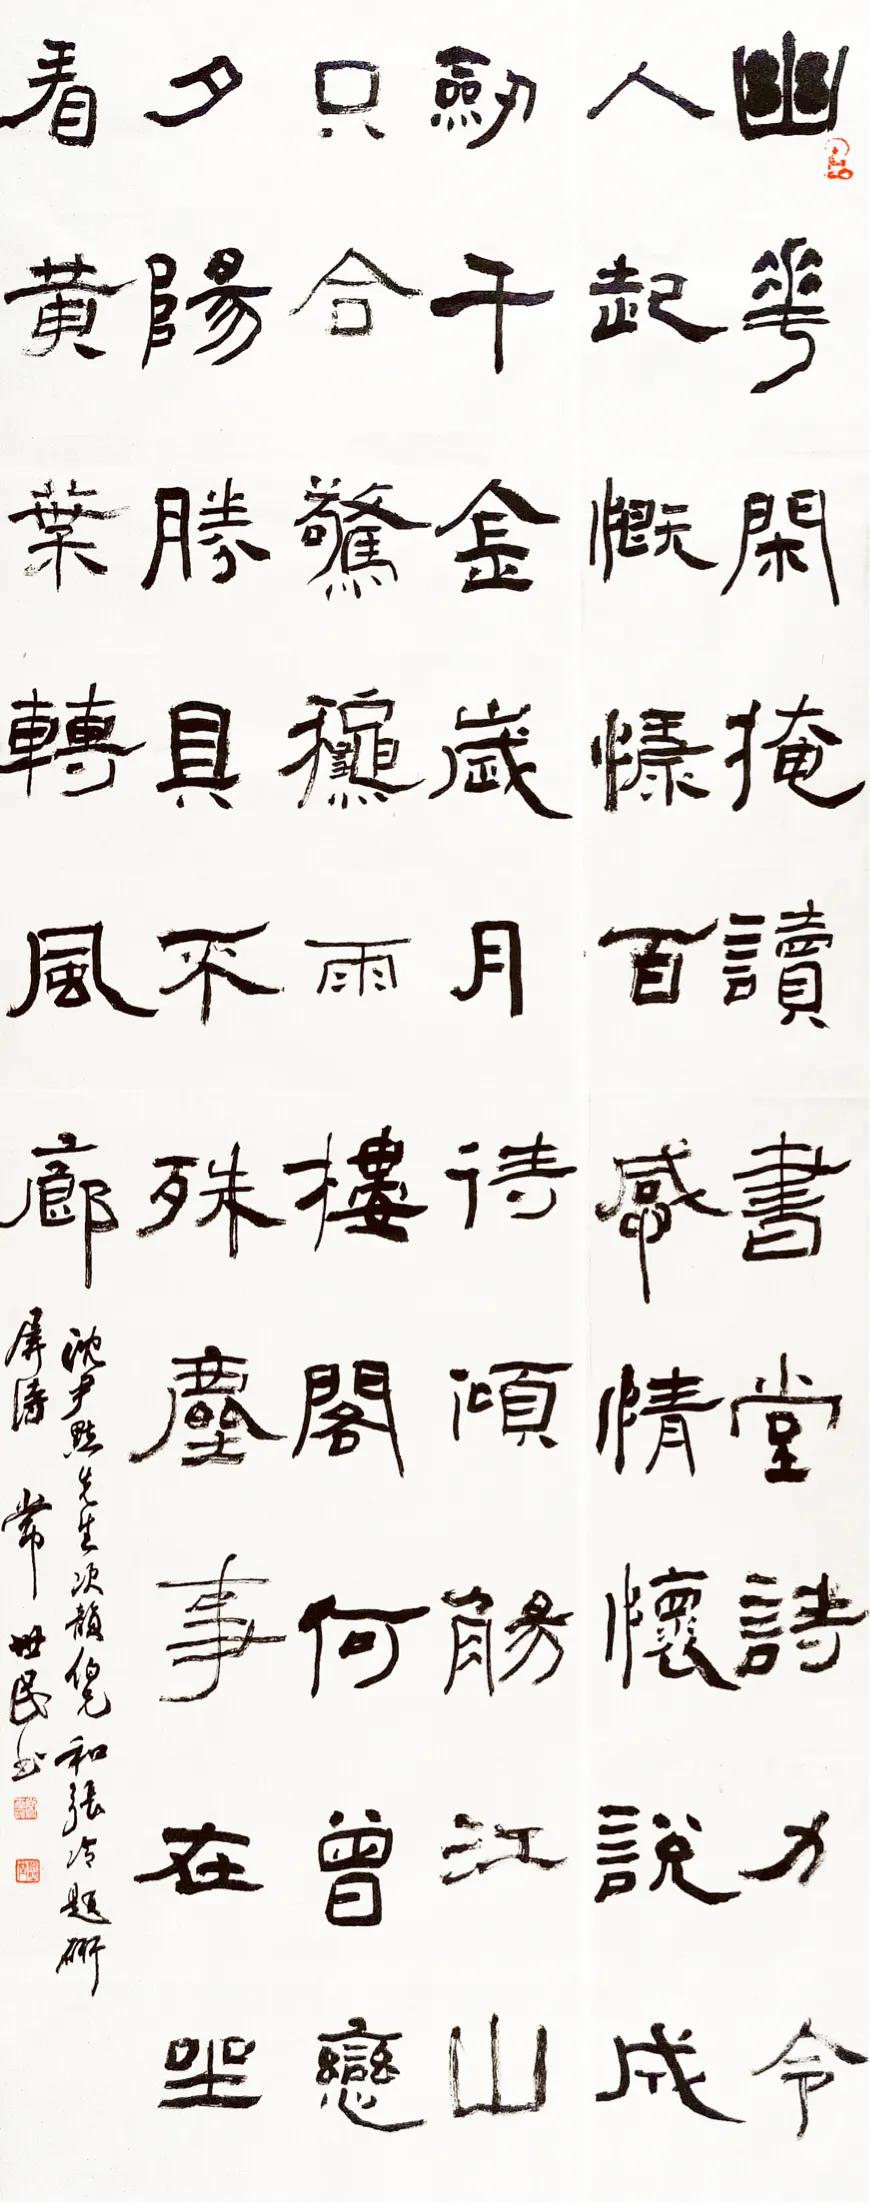 幽華閑掩讀書堂詩力令
人起慨慷百感情懷說成
劒千金歲月待傾觴江山
只合驚雨樓閣何曾戀
夕陽勝具不殊塵事在坐
看黃葉轉風廊
沈尹默先生次韻倪和張冷題研
屏詩 常世民书